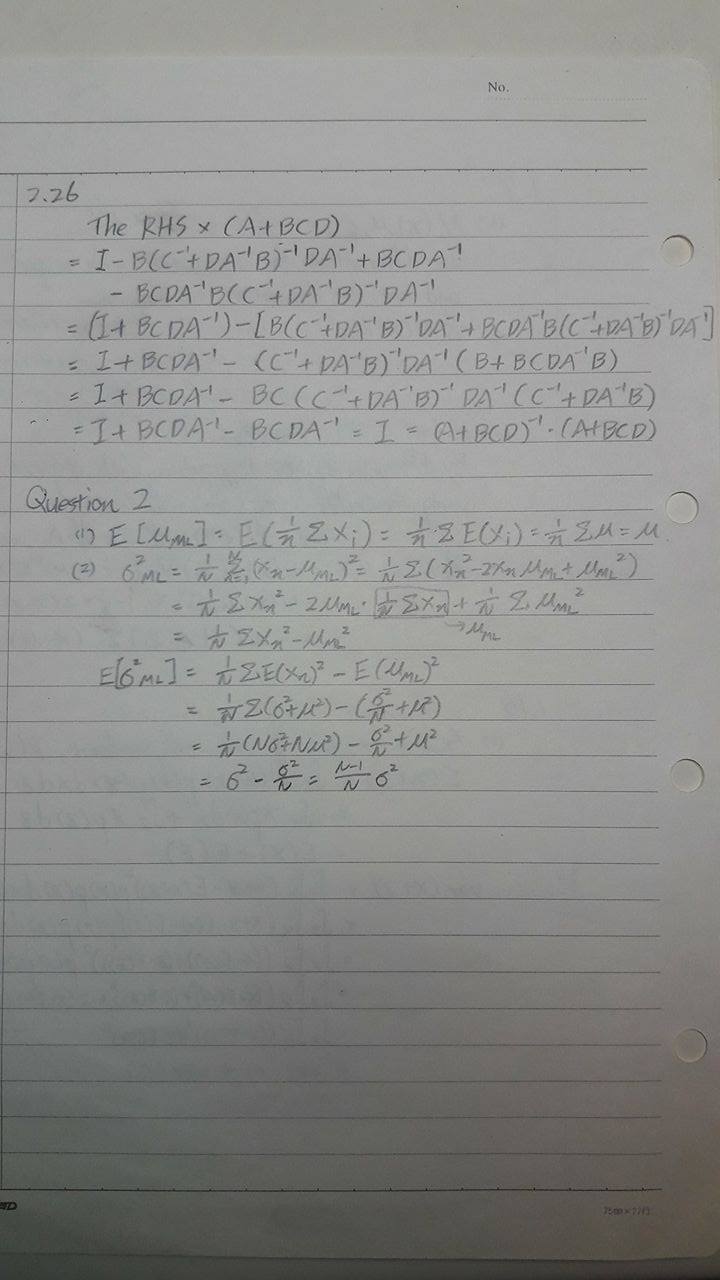 No.
2.26
The RHS × (A+BCD)
= I - B(C⁻¹+DA⁻¹B)⁻¹DA⁻¹ + BCDA⁻¹
- BCDA⁻¹B(C⁻¹+DA⁻¹B)⁻¹DA⁻¹
= (I + BCDA⁻¹) - [B(C⁻¹+DA⁻¹B)⁻¹DA⁻¹ + BCDA⁻¹B(C⁻¹+DA⁻¹B)⁻¹DA⁻¹]
= I + BCDA⁻¹ - (C⁻¹+DA⁻¹B)⁻¹DA⁻¹(B + BCDA⁻¹B)
= I + BCDA⁻¹ - BC(C⁻¹+DA⁻¹B)⁻¹DA⁻¹(C⁻¹+DA⁻¹B)
= I + BCDA⁻¹ - BCDA⁻¹ = I = (A+BCD)⁻¹·(A+BCD)
Question 2
(1) E[μ_ML] = E(1/n Σ X_i) = 1/n Σ E(X_i) = 1/n Σ μ = μ
(2) σ²_ML = 1/N Σ_{n=1}^{N} (x_n - μ_ML)² = 1/N Σ (x_n² - 2x_n μ_ML + μ_ML²)
= 1/N Σ x_n² - 2μ_ML · 1/N Σ x_n + 1/N Σ μ_ML²
→ μ_ML
= 1/N Σ x_n² - μ_ML²
E[σ²_ML] = 1/N Σ E(x_n)² - E(μ_ML)²
= 1/N Σ(σ²+μ²) - (σ²/N + μ²)
= 1/N (Nσ²+Nμ²) - σ²/N + μ²
= σ² - σ²/N = N-1/N σ²